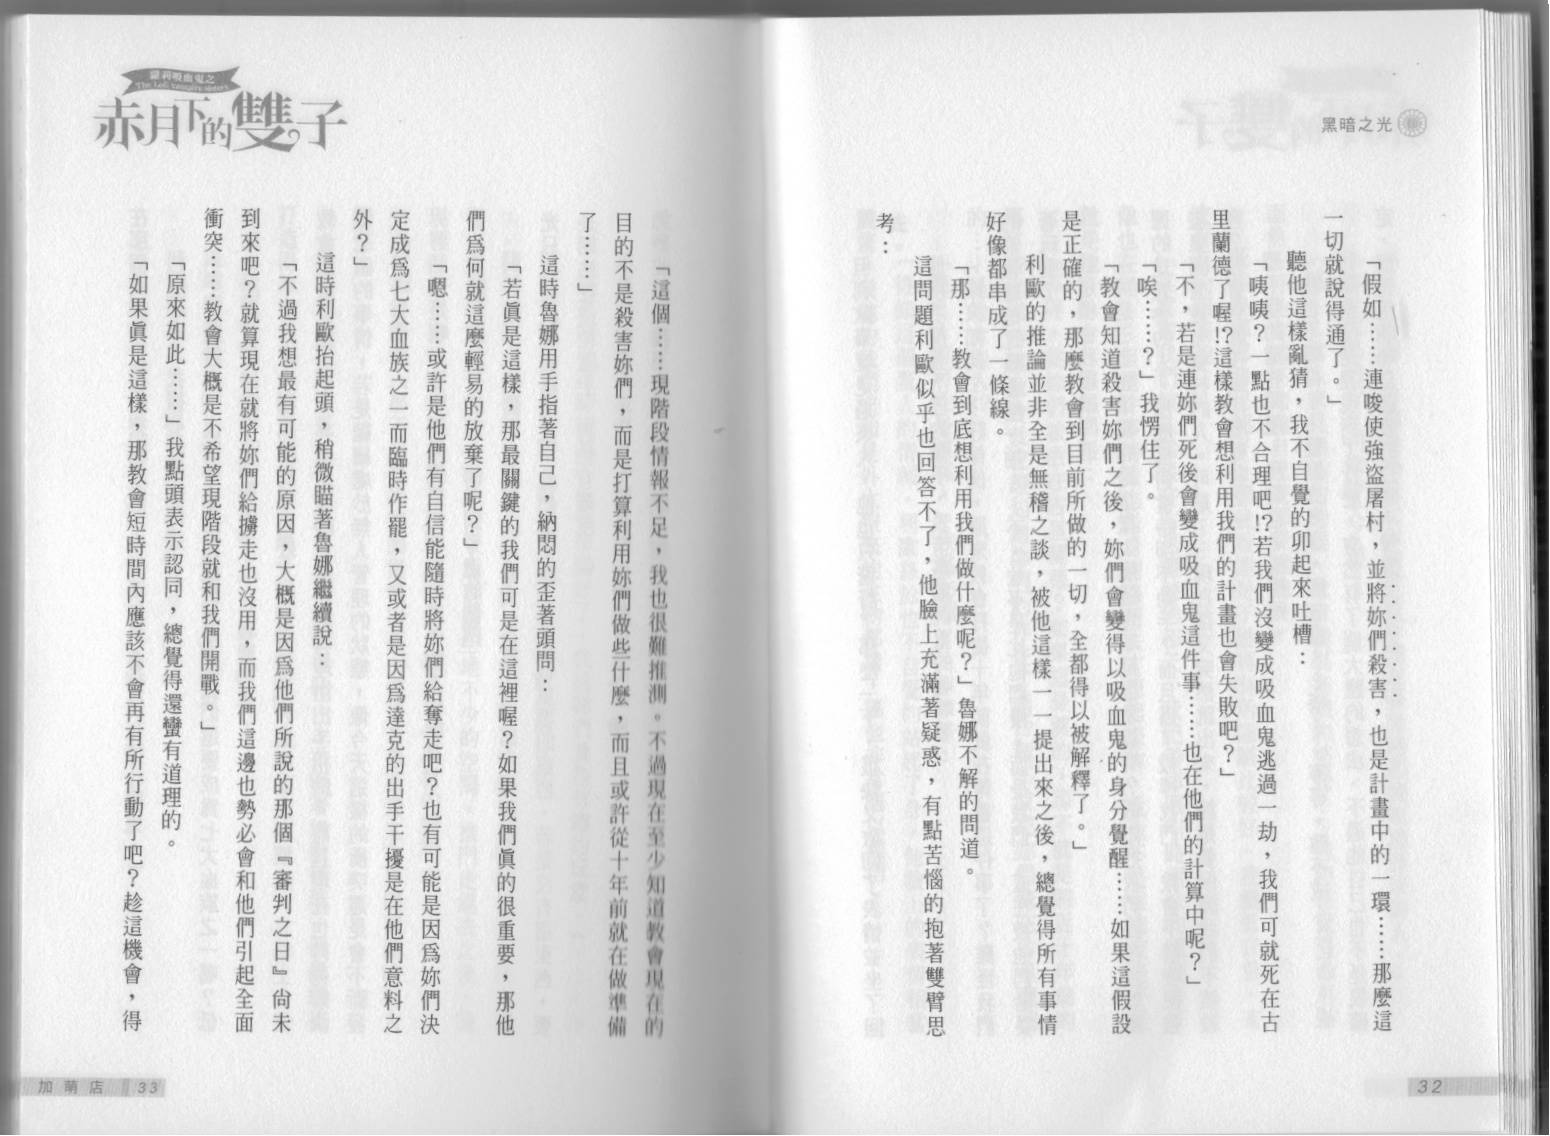 黑暗之光
「假如……連唆使強盜屠村，並將妳們殺害，也是計畫中的一環……那麼這
一切就說得通了。」
聽他這樣亂猜，我不自覺的卯起來吐槽：
「咦咦？一點也不合理吧!?若我們沒變成吸血鬼逃過一劫，我們可就死在古
里蘭德了喔!?這樣教會想利用我們的計畫也會失敗吧？」
「不，若是連妳們死後會變成吸血鬼這件事……也在他們的計算中呢？」
「唉……？」我愣住了。
「教會知道殺害妳們之後，妳們會變得以吸血鬼的身分覺醒……如果這假設
是正確的，那麼教會到目前所做的一切，全都得以被解釋了。」
利歐的推論並非全是無稽之談，被他這樣一一提出來之後，總覺得所有事情
好像都串成了一條線。
「那……教會到底想利用我們做什麼呢？」魯娜不解的問道。
這問題利歐似乎也回答不了，他臉上充滿著疑惑，有點苦惱的抱著雙臂思
考：
32
蘿莉吸血鬼之
The Loli vampire sisters
赤月下的雙子
「這個……現階段情報不足，我也很難推測。不過現在至少知道教會現在的
目的不是殺害妳們，而是打算利用妳們做些什麼，而且或許從十年前就在做準備
了……」
這時魯娜用手指著自己，納悶的歪著頭問：
「若真是這樣，那最關鍵的我們可是在這裡喔？如果我們真的很重要，那他
們為何就這麼輕易的放棄了呢？」
「嗯……或許是他們有自信能隨時將妳們給奪走吧？也有可能是因為妳們決
定成為七大血族之一而臨時作罷，又或者是因為達克的出手干擾是在他們意料之
外？」
這時利歐抬起頭，稍微瞄著魯娜繼續說：
「不過我想最有可能的原因，大概是因為他們所說的那個『審判之日』尚未
到來吧？就算現在就將妳們給擄走也沒用，而我們這邊也勢必會和他們引起全面
衝突……教會大概是不希望現階段就和我們開戰。」
「原來如此……」我點頭表示認同，總覺得還蠻有道理的。
「如果真是這樣，那教會短時間內應該不會再有所行動了吧？趁這機會，得
加萌店
33